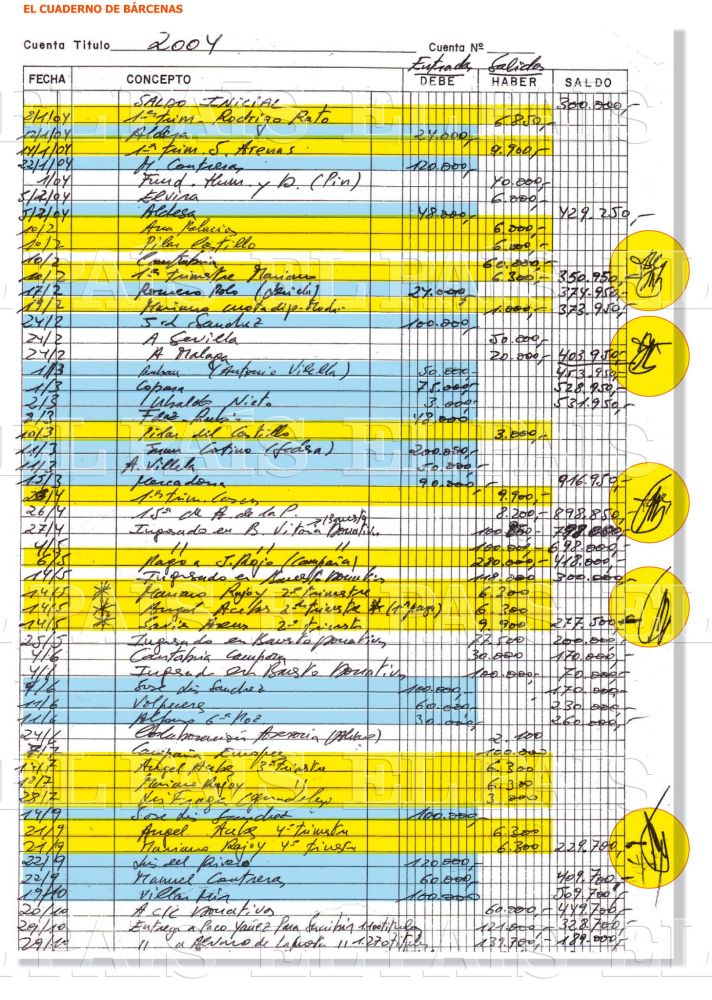 EL CUADERNO DE BÁRCENAS
Cuenta Titulo 2004 Cuenta Nº
Entradas Salidas
FECHA CONCEPTO DEBE HABER SALDO
SALDO INICIAL 500.000,-
2/1/04 1er trim. Rodrigo Rato 6.850,-
Aldesa 24.000,-
14/1/04 1er trim. J. Arenas 9.900,-
22/1/04 M. Contreras 120.000,-
1/04 Fund. Hum. y D. (Pin) 40.000,-
5/2/04 Elvira 6.000,-
5/2/04 Aldesa 48.000,- 429.250,-
10/2 Ana Palacio 6.000,-
10/2 Pilar Castillo 6.000,-
10/2 Cantabria 60.000,-
10/2 1er trimestre Mariano 6.300,- 350.950,-
17/2 Romero Polo 24.000,- 374.950,-
19/2 Mariano cuota dip. 1.000,- 373.950,-
24/2 José L. Sanchez 100.000,-
24/2 A Sevilla 50.000,-
24/2 A Malaga 20.000,- 403.950,-
1/3 Rubau (Antonio Vilella) 50.000,- 453.950,-
1/3 Copasa 75.000,- 528.950,-
2/3 Ubaldo Nieto 3.000,- 531.950,-
2/3 Fdez. Rubio 48.000
10/3 Pilar del Castillo 3.000,-
11/3 Juan Cotino (Sedesa) 200.000,-
11/3 A. Vilella 50.000,-
15/3 Mercadona 90.000,- 916.950,-
1er trim. Cascos 9.900,-
26/4 de A de la P. 8.200,- 898.850,-
27/4 Ingresado en B. Vitoria Donativos
4/5 " " " 100.000,- 698.000,-
6/5 Pago a J. Rojo (Campaña) 280.000,- 418.000,-
14/5 Ingresado en Donativos 118.000 300.000,-
14/5 * Mariano Rajoy 2º trimestre 6.300
14/5 * Angel Acebes 2º trimestre * (1er pago) 6.300
14/5 * Javier Arenas 2º trimestre 9.900 277.500,-
25/5 Ingresado en Banesto Donativos 77.500 200.000,-
4/6 Cantabria Campaña 30.000 170.000,-
4/6 Ingreso en Banesto Donativos 100.000,- 70.000,-
9/6 José Luis Sanchez 100.000,- 170.000,-
11/6 60.000,- 230.000,-
11/6 Alfonso Gª Pozo 30.000,- 260.000,-
24/6 Colaboración Asesoria 2.100
Campaña Europeas 100.000
Angel Acebes 3º trimestre 6.300
Mariano Rajoy " 6.300
28/7 3.000
14/9 José Luis Sanchez 100.000,-
21/9 Angel Acebes 4º trimestre 6.300
21/9 Mariano Rajoy 4º trimestre 6.300 229.700,-
22/9 Luis del Rivero 120.000,-
22/9 Manuel Contreras 60.000,- 409.700,-
19/10 Villar Mir 100.000 509.700,-
20/10 A C/C Donativos 60.000,- 449.700,-
29/10 Entrega a Paco Yañez Para suscribir 1.100 titulos 121.000,- 328.700,-
29/10 " a Alvaro de Lapuerta " 1.270 titulos 139.700,- 189.000,-
EL PAÍS